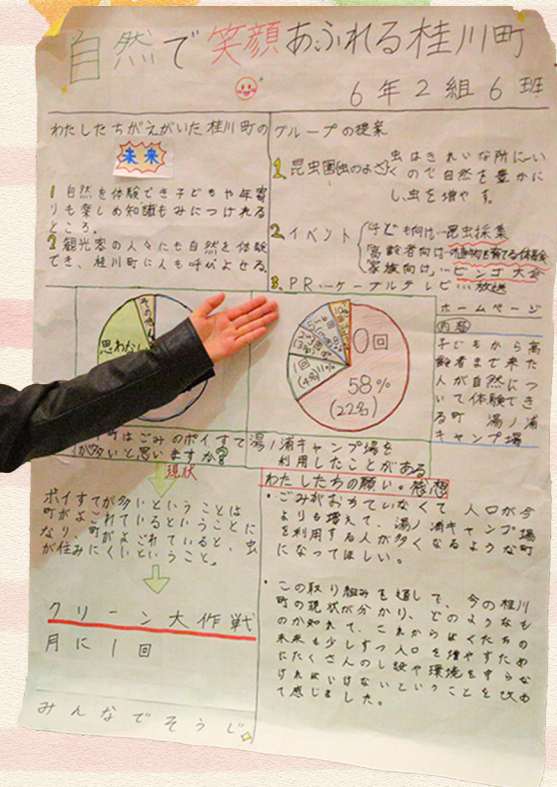 自然で笑顔あふれる桂川町
6年2組6班
わたしたちがえがいた桂川町の
未来
1 自然を体験でき子どもや年寄
りも楽しめ知識もみにつけれる
ところ。
2 観光客の人々にも自然を体験
でき、桂川町に人も呼びよせる。
グループの提案
1.昆虫園(虫のよさ)
虫はきれいな所にい
ので自然を豊かに
し、虫を増やす。
2.イベント
子ども向け…昆虫採集
高齢者向け…
家族向け…ビンゴ大会
3.PR…ケーブルテレビ…放送
ホームページ
内容
子どもから高
齢者まで来た
人が自然につ
いて体験でき
る町 湯ノ浦
キャンプ場
その他
思わない
0回
58%
(22名)
1回
(4名)11%
町はごみのポイすて
が多いと思いますか?
湯ノ浦キャンプ場を
利用したことがある
現状
ポイすてが多いということは
町がよごれているということに
なり、町がよごれていると、虫
が住みにくいということ。
クリーン大作戦
月に1回
みんなでそうじ
わたしたちの願い。感想
・ごみがおちていなくて人口が今
よりも増えて、湯ノ浦キャンプ場
を利用する人が多くなるような町
になってほしい。
・この取り組みを通して、今の桂川
町の現状が分かり、どのようなも
のか知れて、これからぼくたちの
未来も少しずつ人口を増やすため
にたくさんのし設や環境をすらな
ければいけないということを改め
て感じました。